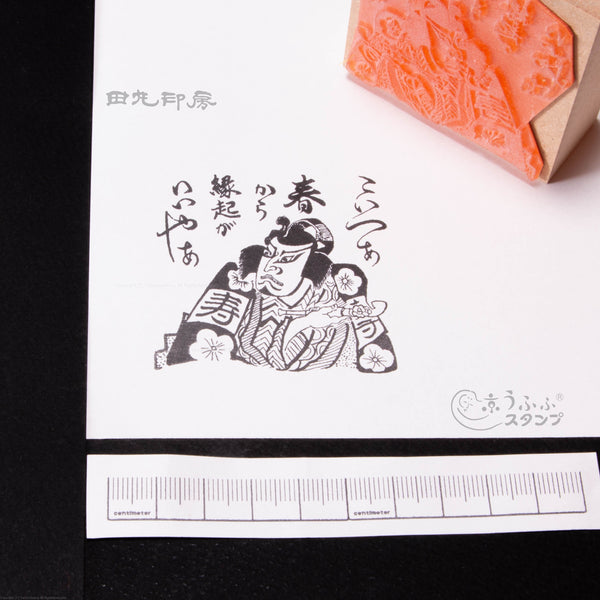 田丸印房
こいつぁ
春
から
縁起が
いいやぁ
寿
京うふふ®
スタンプ
centimeter
centimeter